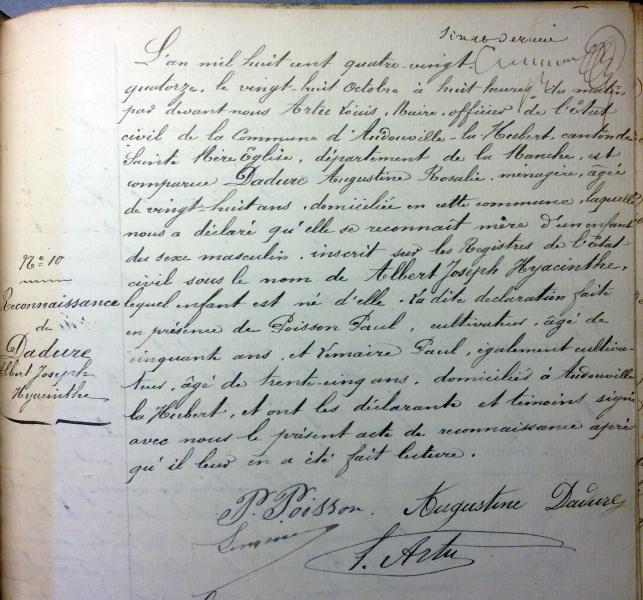 L'an mil huit cent quatre-vingt-
quatorze, le vingt-huit Octobre à huit heures du matin
par devant nous Artu Louis, Maire, officier de l'Etat
civil de la Commune d'Audouville-la Hubert, canton de
Sainte Mère Eglise, département de la Manche, est
comparue Dadure Augustine Rosalie, ménagère, âgée
de vingt-huit ans, domiciliée en cette commune, laquelle
nous a déclaré qu'elle se reconnaît mère d'un enfant
du sexe masculin, inscrit sur les Registres de l'Etat
civil sous le nom de Albert Joseph Hyacinthe,
lequel enfant est né d'elle. La dite déclaration faite
en présence de Poisson Paul, cultivateur, âgé de
cinquante ans, et Lemaire Paul, également cultiva-
teur, âgé de trente-cinq ans, domiciliés à Audouville
la Hubert, et ont les déclarante et témoins signé
avec nous le présent acte de reconnaissance après
qu'il leur en a été fait lecture.
N° 10
Reconnaissance
de
Dadure
Albert Joseph
Hyacinthe
P. Poisson. Augustine Dadure
Lemaire
L. Artu